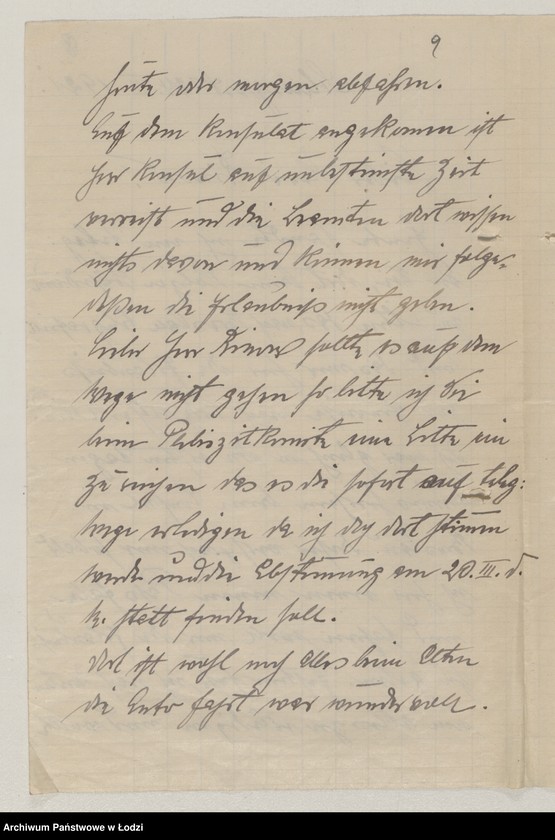 9
heute oder morgen abfahren.
Auf dem Konsulat angekomen ist
Herr Konsul auf unbestimte Zeit
verreist und die Beamten dort wissen
nichts davon und können mir folge-
deßen die Erlaubniß nicht geben.
Lieber Herr sollte es auf dem
Wege nicht gehen so bitte ich Sie
beim Plebiszitkomite eine Bitte ein
zu reichen das es die sofort auf teleg:
Wege erledigen da ich doch dort stimmen
werde und die Abstimung am 20. III. d.
statt finden soll.
Dort ist wohl noch alles beim Alten
die Auto fahrt war wundervoll.
Archiwum Państwowe w Łodzi